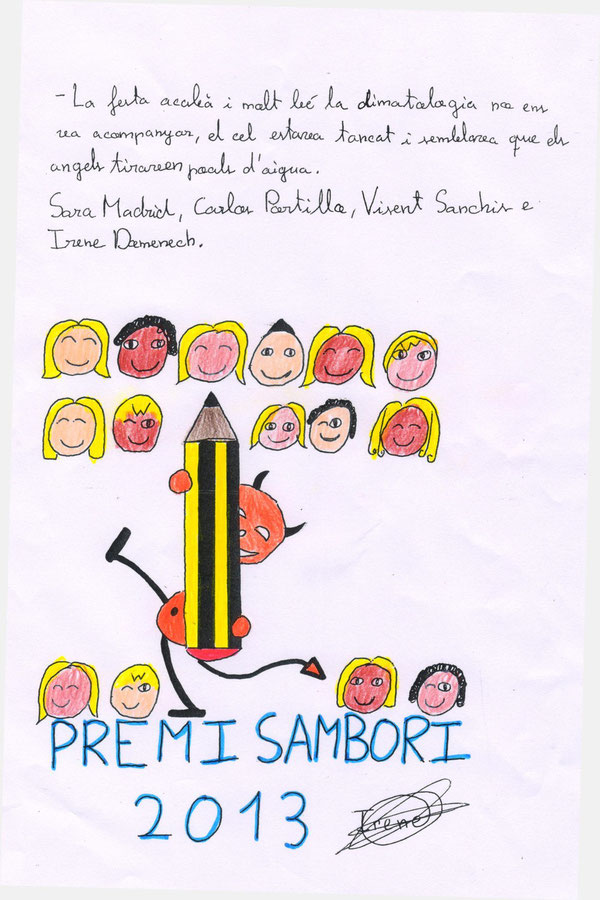 - La festa acabà i molt bé la climatologia no ens
va acompanyar, el cel estava tancat i semblava que els
angels tiraven poals d'aigua.
Sara Madrid, Carlos Portillo, Visent Sanchis e
Irene Domenech.
PREMI SAMBORI
2013
Irene